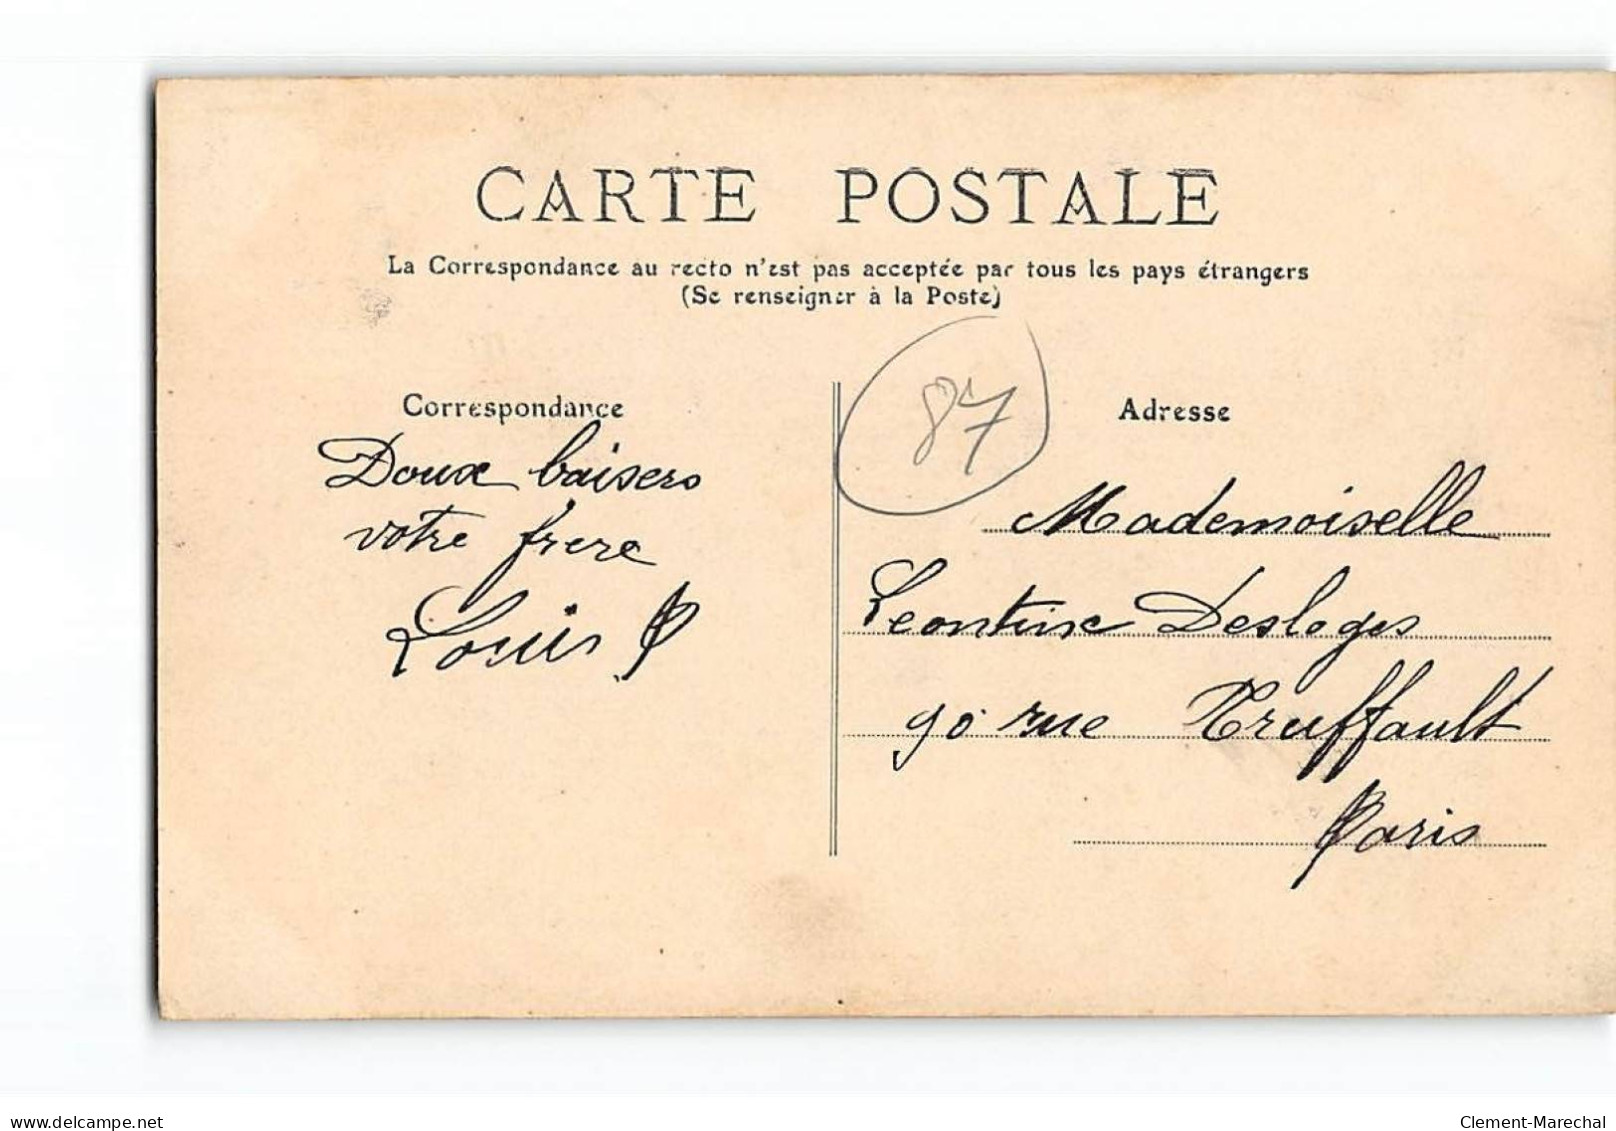 CARTE POSTALE
La Correspondance au recto n'est pas acceptée par tous les pays étrangers
(Se renseigner à la Poste)
87
Correspondance
Doux baisers
votre frere
Louis P
Adresse
Mademoiselle
Leontine Desloges
90 rue Truffault
Paris
delcampe.net
Clement-Marechal